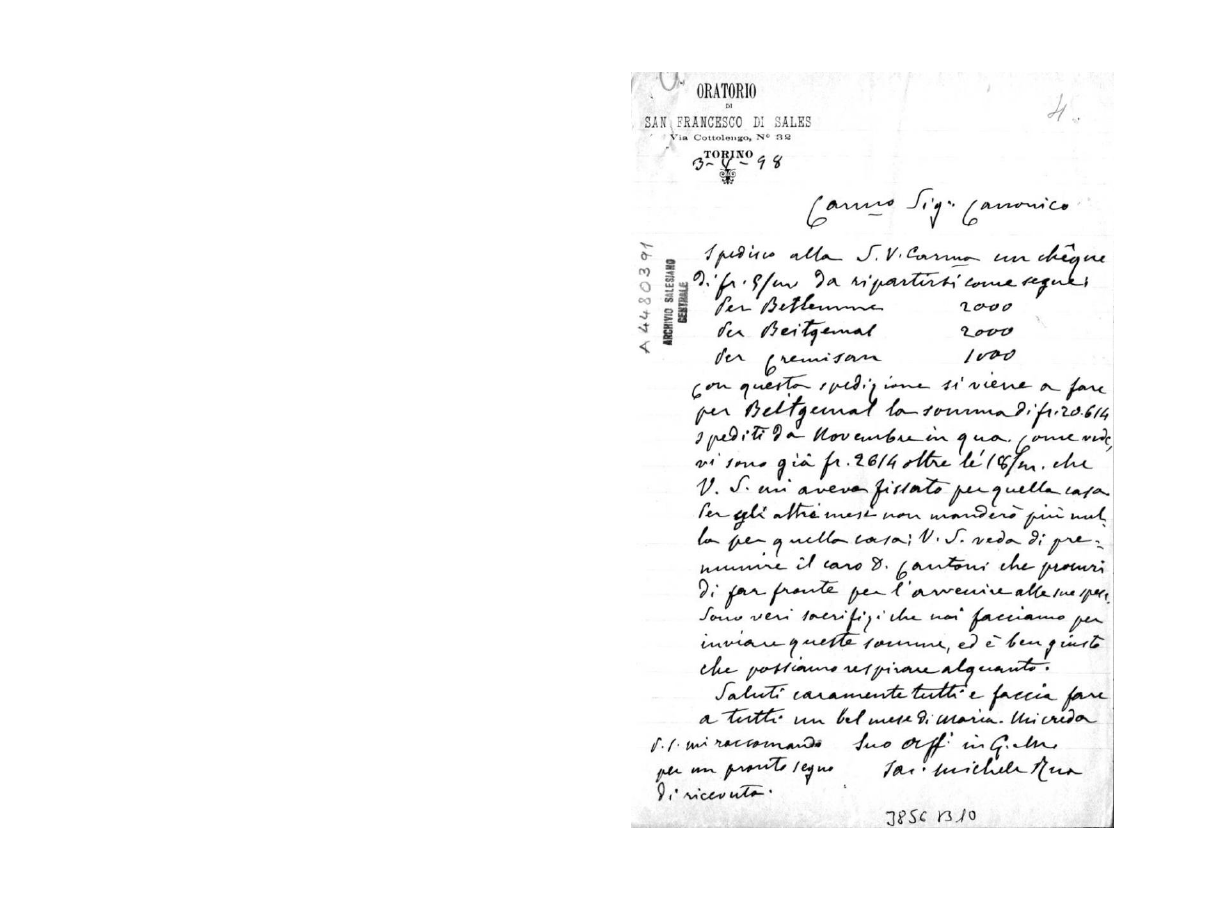 ORATORIO
DI
SAN FRANCESCO DI SALES
Via Cottolengo, Nº 32
TORINO
3- -98
4.
Carmo Sigr Canonico
A4480391
ARCHIVIO SALESIANO
CENTRALE
Spedisco alla S.V. Carma un chêque
di fr. 5/m da ripartirsi come segue:
Per Betlemme 2000
Per Beitgemal 2000
Per Cremisan 1000
Con questa spedizione si viene a fare
per Beitgemal la somma di fr. 20.614
spediti da Novembre in qua. Come vede,
vi sono già fr. 2614 oltre le 18/m. che
V. S. mi aveva fissato per quella casa
Per gli altri mesi non manderò più nul-
la per quella casa; V. S. veda di pre-
munire il caro D. Cantoni che procuri
di far fronte per l'avvenire alle sue spese.
Sono veri sacrifizi che noi facciamo per
inviare queste somme, ed è ben giusto
che possiamo respirare alquanto.
Saluti caramente tutti e faccia fare
a tutti un bel mese di Maria. Mi creda
Suo aff in G. e M.
Sac. Michele Rua
P.S. mi raccomando
per un pronto segno
di ricevuta.
3856 B10